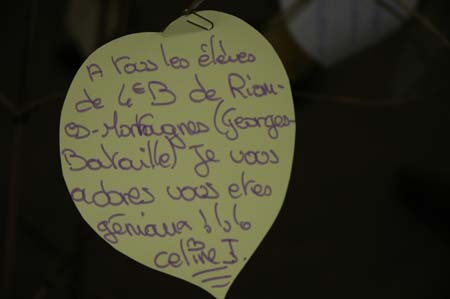 A tous les élèves
de 4eB de Riom-
es-Montagnes (Georges-
Bataille) Je vous
adores vous etes
géniaux !!!
celine J.